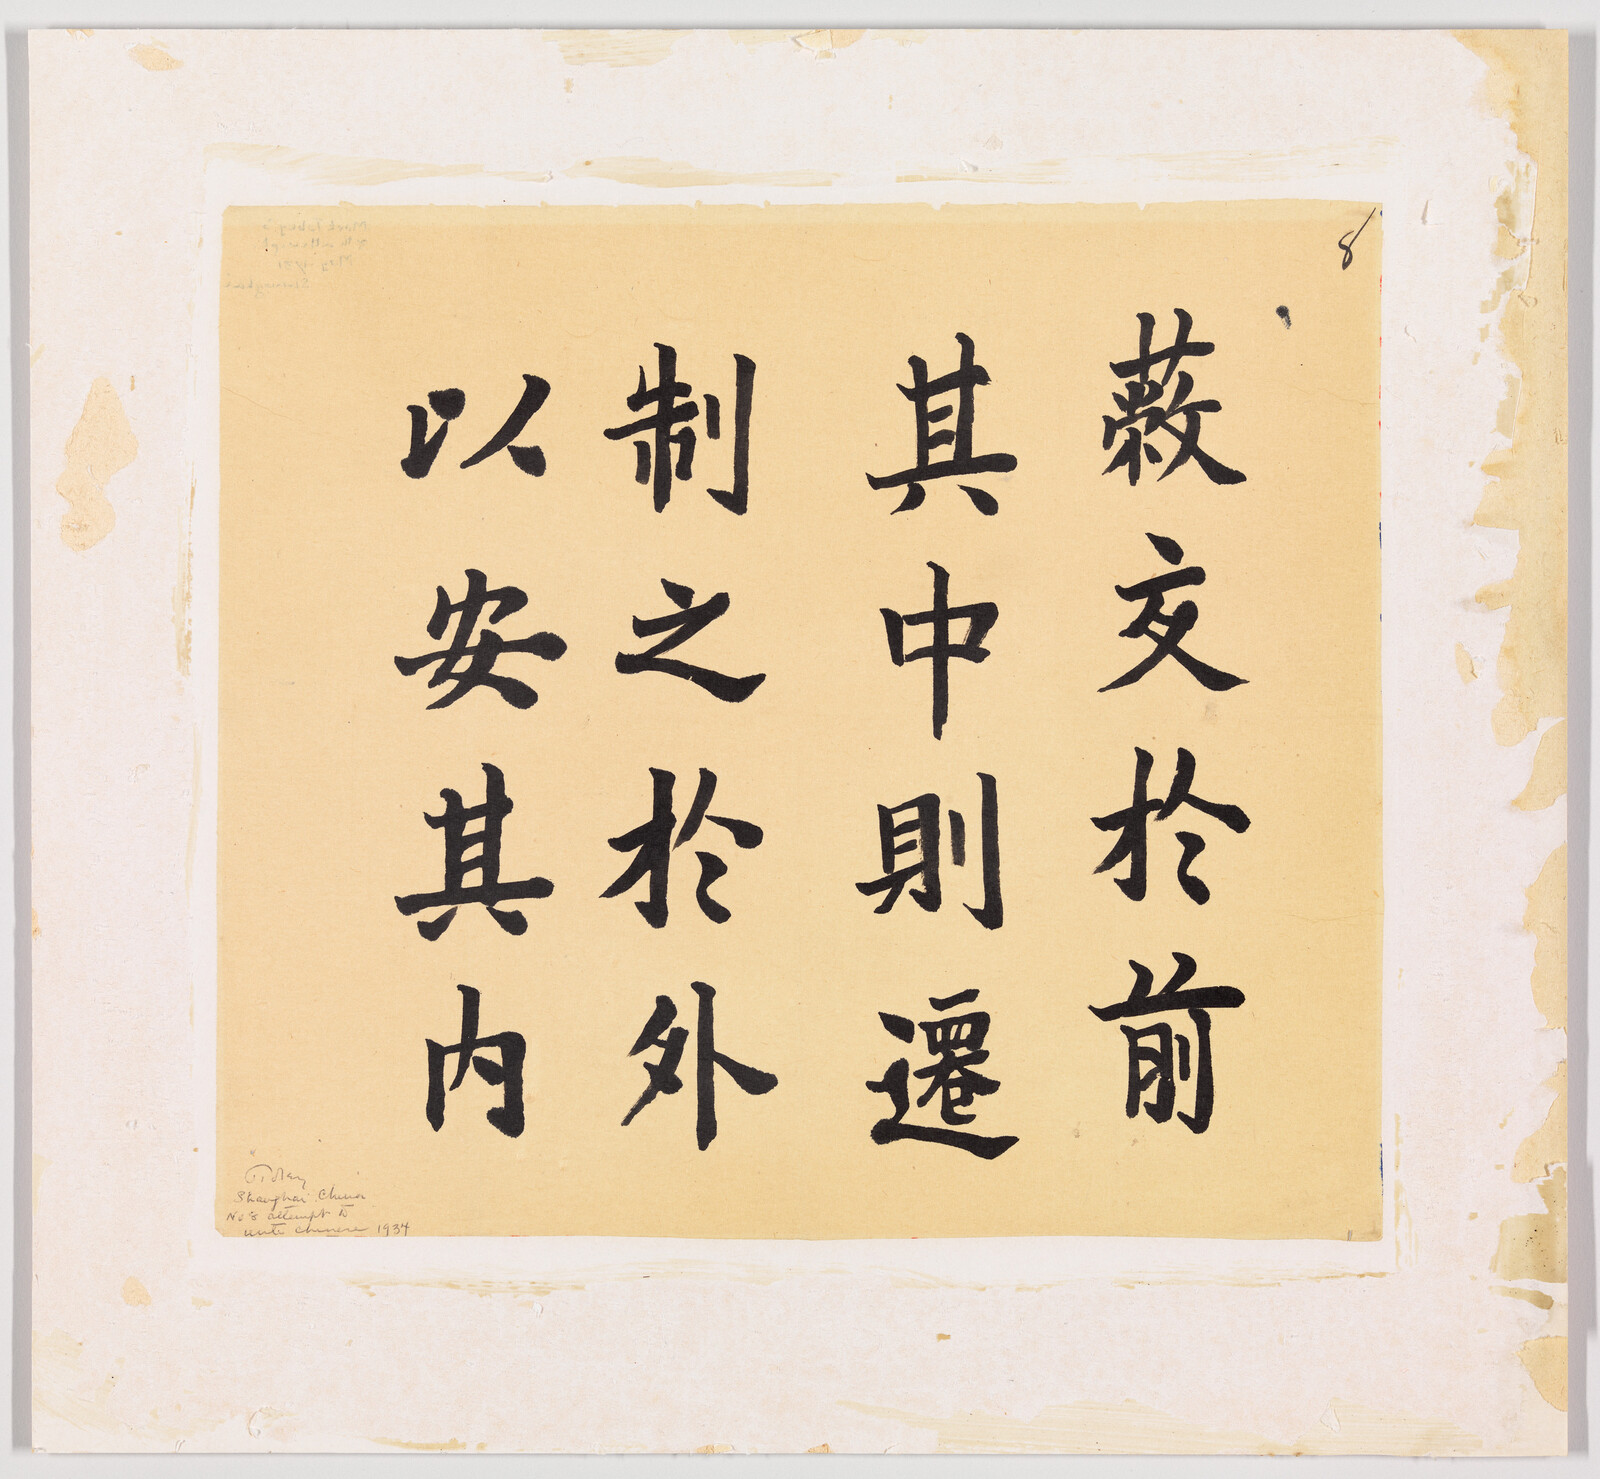 8
蔽交於前
其中則遷
制之於外
以安其内
Tobey
Shanghai, China
No 8 attempt to
write chinese 1934